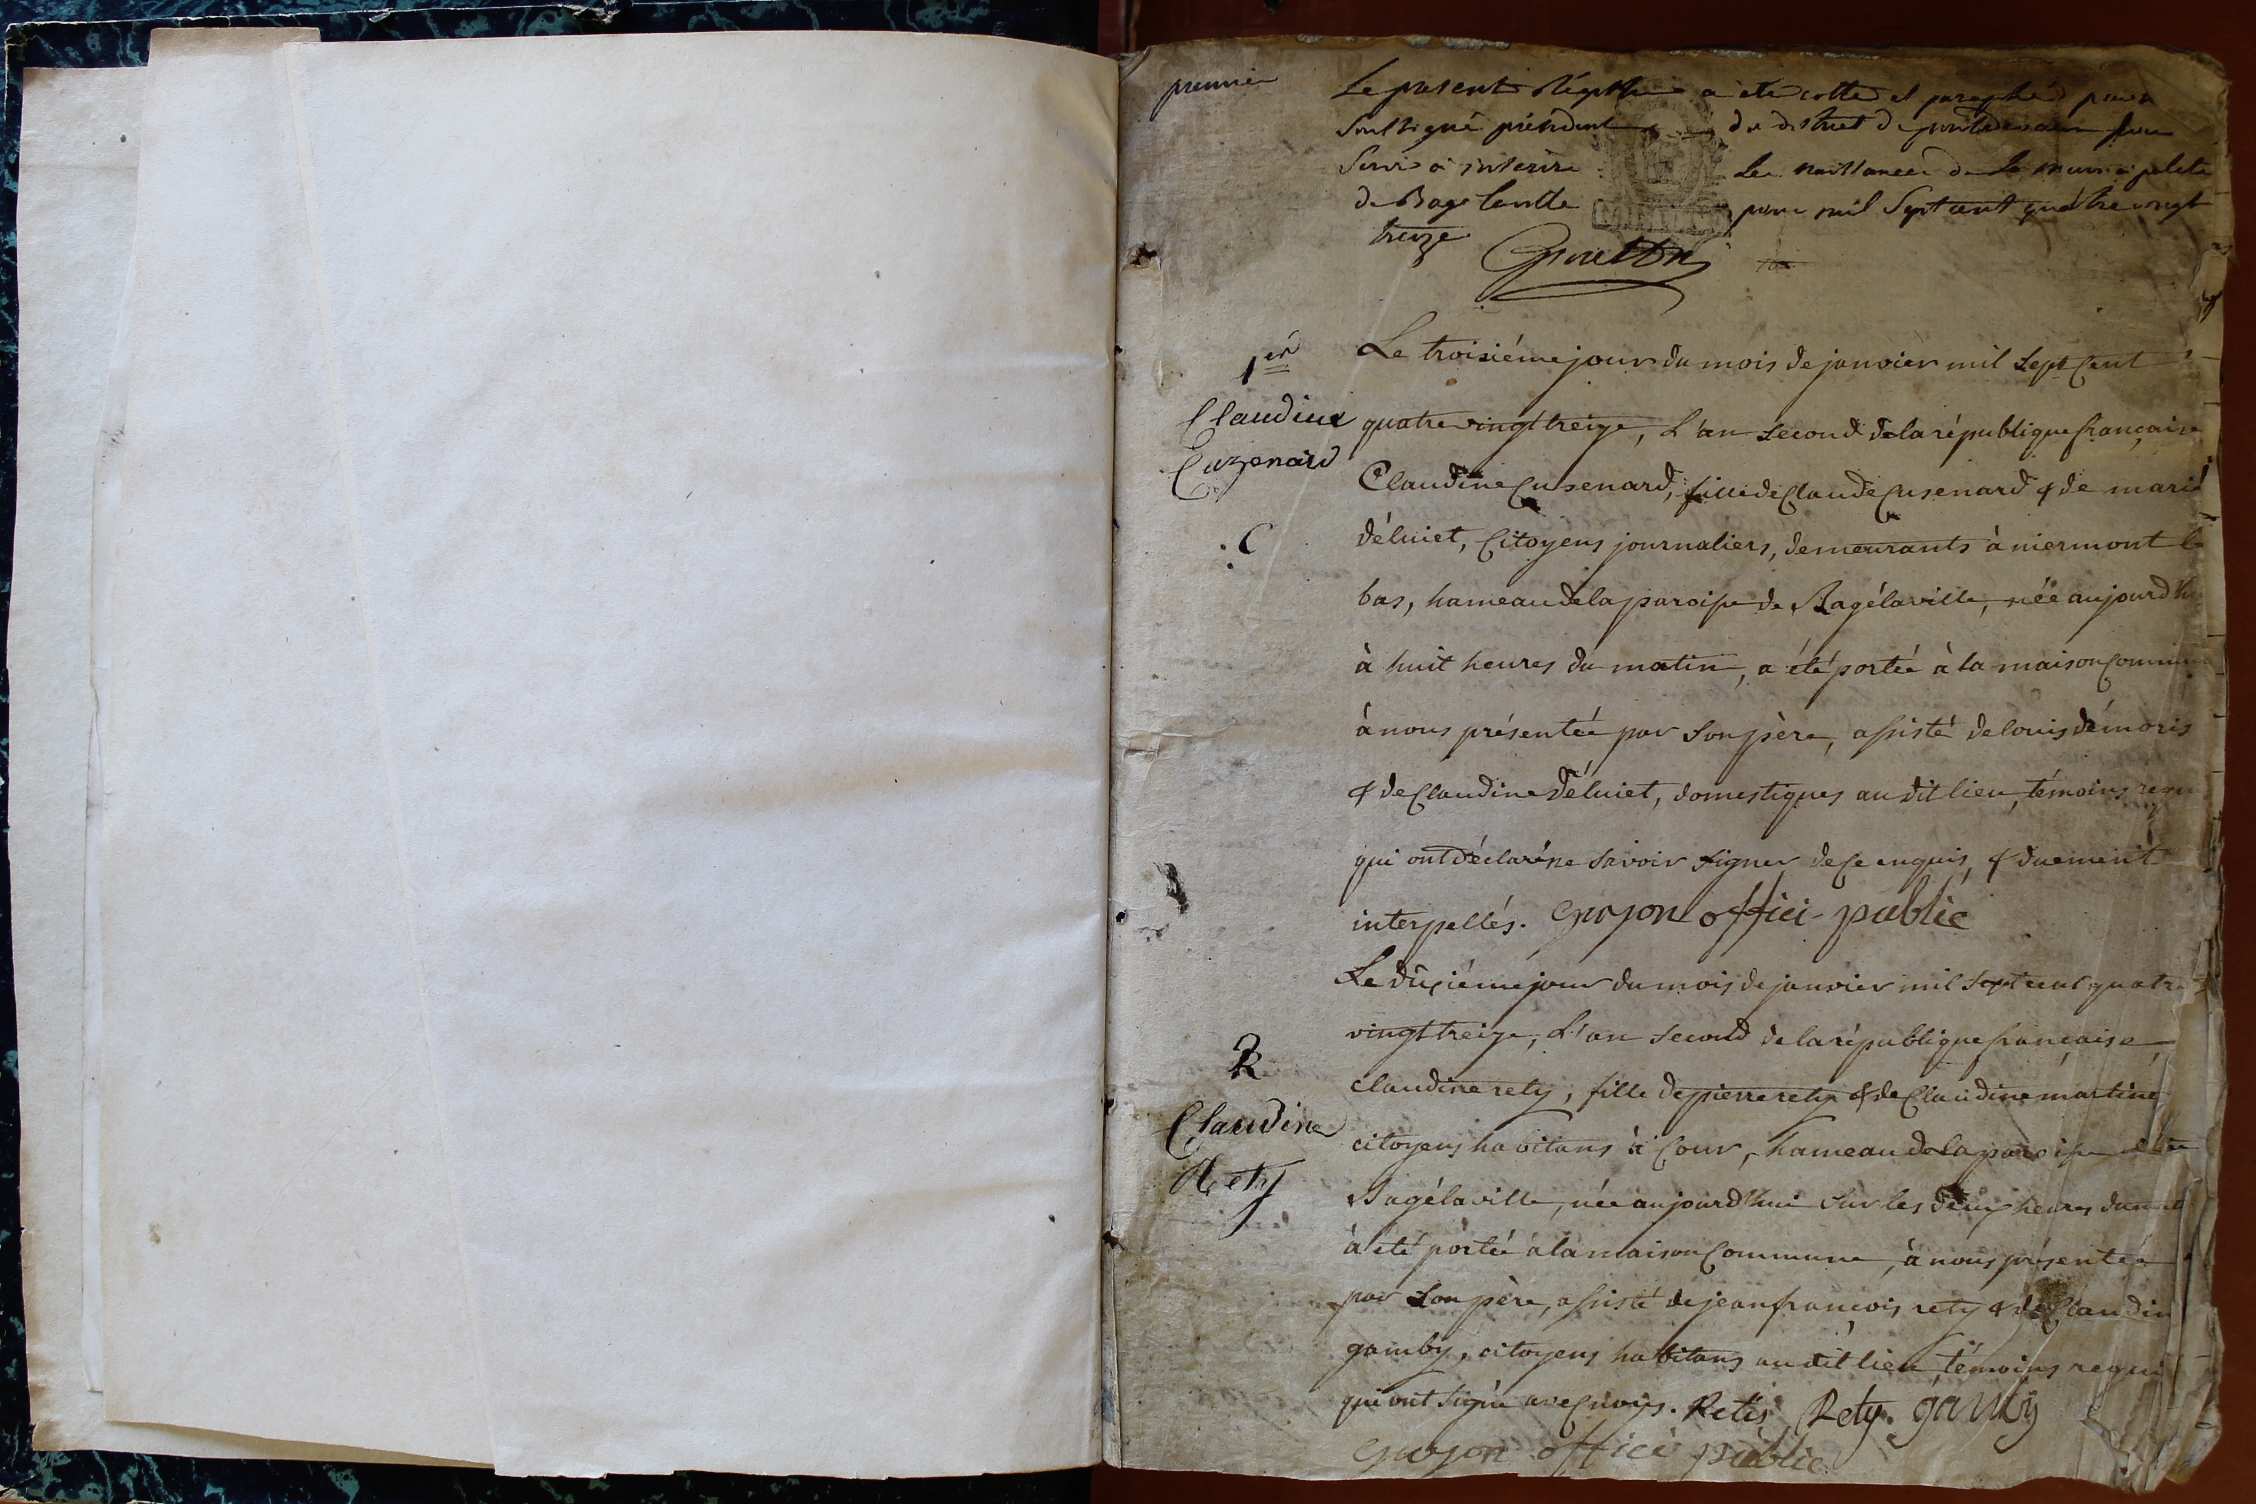 premier
Le present Régistre a été cotté et paraphé par
soussigné président du district de pontdevaux pour
servir à inscrire les naissances de la municipalité
de Bagé laville pour mil sept cent quatre vingt
treize
1er
Claudine
Cuzenard
C
Le troisiéme jour du mois de janvier mil sept cent
quatre vingt treize, l'an second de la république française
Claudine Cusenard, fille de Claude Cusenard & de marie
déluiet, Citoyens journaliers, demeurants à niermont le
bas, hameau de la paroisse de Bagélaville, née aujourd'hui
à huit heures du matin, a été portée à la maison Commune
à nous présentée par son père, assisté de louis démoris
& de Claudine déluiet, domestiques au dit lieu, témoins requis
qui ont déclaré ne savoir signer de ce enquis, & duement
interpellés. guyon offici public
2
Claudine
Rety
Le dixiéme jour du mois de janvier mil sept cent quatre
vingt treize, l'an second de la république française
claudine rety, fille de pierre rety & de Claudine martine
citoyens habitans à Cour, hameau de la paroisse de
Bagélaville, née aujourd'hui sur les deux heures du matin
à été portée à la maison Commune, à nous présentée
par son père, assisté de jean françois rety & de Claudin
gamby, citoyens habitans au dit lieu témoins requis
qui ont signé avec nous. Retis Rety. gamby
guyon office public